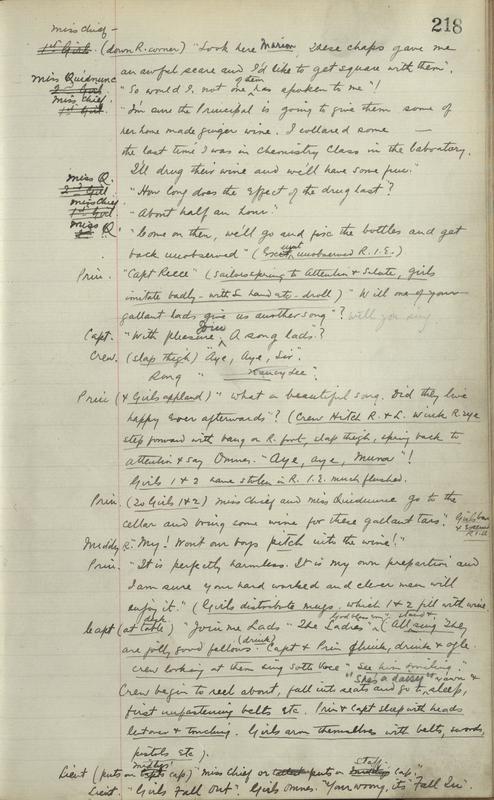 218
Miss Chief -
1st Girl. (down R. corner) "Look here Marion, These chaps gave me
an awful scare and I'd like to get square with them".
Miss Quidnunc
2nd Girl "So would I, not one of them has spoken to me"!
Miss Chief.
1st Girl. "I'm sure the Principal is going to give them some of
her home made ginger wine. I collared some —
the last time I was in Chemistry Class in the laboratory.
I'll drug their wine and we'll have some fun."
Miss Q.
2nd Girl "How long does the effect of the drug last"?
Miss Chief
1st Girl "About half an hour."
Miss Q "Come on then, we'll go and fix the bottles and get
back unobserved" (Exit unobserved R.I.E.)
Prin. "Capt Reece" (Sailors spring to Attention & Salute, girls
imitate badly - with L hand etc - droll) "Will one of your
gallant lads give us another song"? will you sing
Capt. "With pleasure. A song lads"?
Crew. (slap thigh) "Aye, Aye, Sir".
Song "Nancy Lee".
Prin (& Girls applaud) "What a beautiful song. Did they live
happy ever afterwards"? (Crew Hitch R. & L. Wink R eye
step forward with bang on R. foot, slap thigh, spring back to
attention & say Omnes. "Aye, aye, Mum"!
Girls 1 & 2 have stolen in R. I.E. much flushed.
Prin. (To Girls 1&2) Miss Chief and Miss Quidnunc go to the
cellar and bring some wine for these gallant tars".
Middy R. "My! Wont our boys pitch into the wine!"
Prin. "It is perfectly harmless. It is my own preparation and
I am sure your hard worked and clever men will
enjoy it." (Girls distribute mugs, which 1 & 2 fill with wine
Capt (at desk table) "Join me Lads" "The Ladies" (All sing They
are jolly good fellows. (drink) Capt & Prin drink & ogle.
Crew looking at them sing Sotto Voce "See him smiling."
"She's a daisy"
Crew begin to reel about, fall into seats and go to sleep,
first unfastening belts etc. Prin & Capt sleep with heads
between & touching. Girls arm themselves with belts, swords,
pistols etc).
Lieut (puts on middy's cap) "Miss Chief puts on Capt." cap."
Lieut. "Girls Fall Out". Girls Omnes. "You're wrong, it's Fall In".